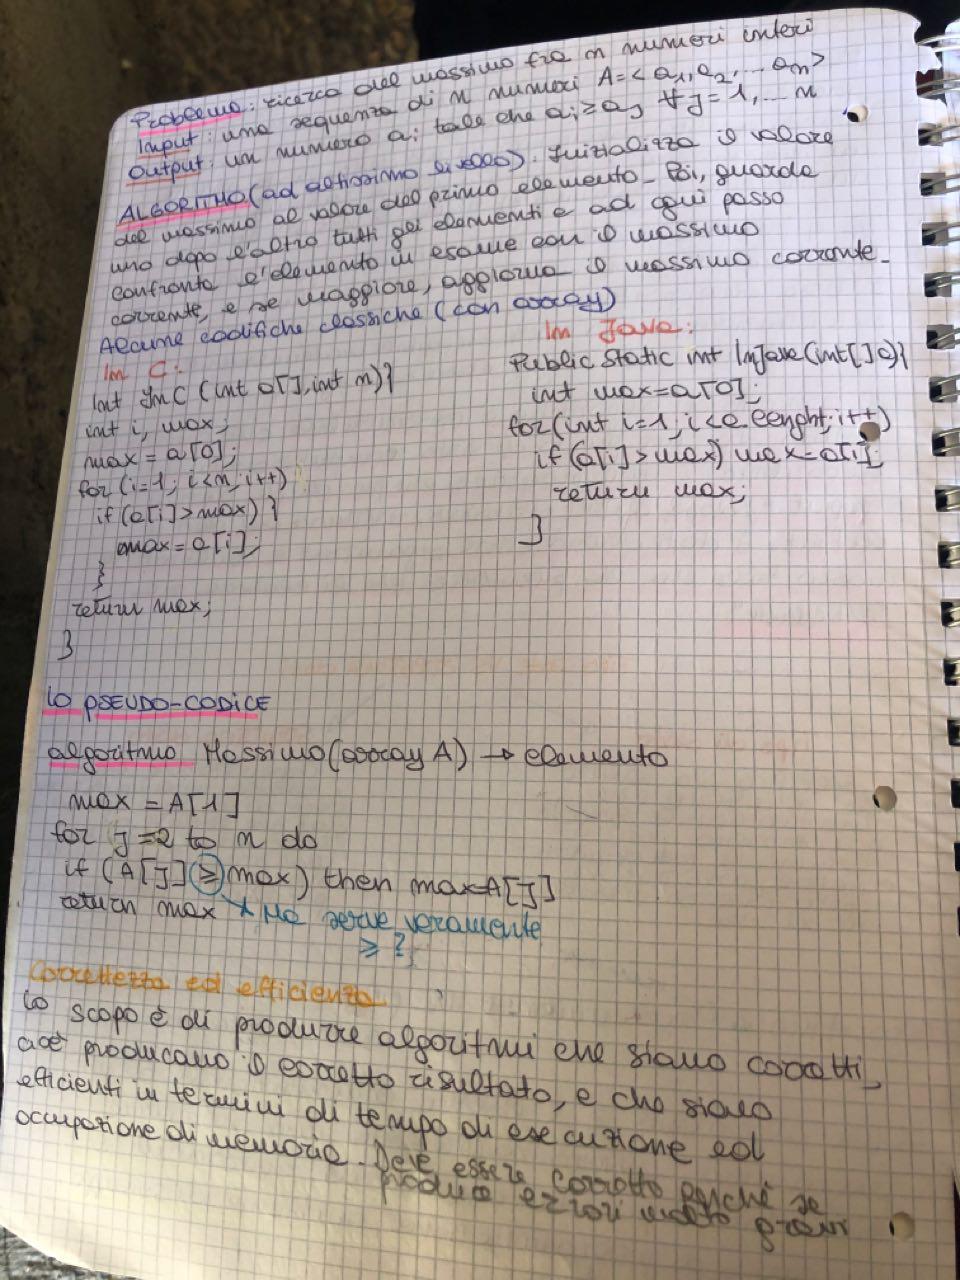 Problema: ricerca del massimo fra n numeri interi
Input: una sequenza di n numeri A=<a1,a2,...an>
Output: un numero ai tale che ai≥aj ∀j=1,...n
ALGORITMO (ad altissimo livello). Inizializza il valore
del massimo al valore del primo elemento. Poi, guarda
uno dopo l'altro tutti gli elementi e ad ogni passo
confronta l'elemento in esame con il massimo
corrente, e se maggiore, aggiorna il massimo corrente.
Alcune codifiche classiche (con array)
In C:
Int InC (int a[], int n){
int i, max;
max = a[0];
for (i=1; i<n; i++)
if (a[i]>max) {
max = a[i];
}
return max;
}
In Java:
Public static int InJava (int[] a){
int max=a[0];
for(int i=1; i<a.lenght; i++)
if (a[i]>max) max=a[i];
return max;
}
Lo PSEUDO-CODICE
algoritmo Massimo (array A) → elemento
max = A[1]
for j=2 to n do
if (A[j] ≥ max) then max=A[j]
return max * Ma serve veramente
≥ ?
Correttezza ed efficienza
Lo scopo è di produrre algoritmi che siano corretti,
cioè producano il corretto risultato, e che siano
efficienti in termini di tempo di esecuzione ed
occupazione di memoria. Deve essere corretto perché se
produce errori molto gravi